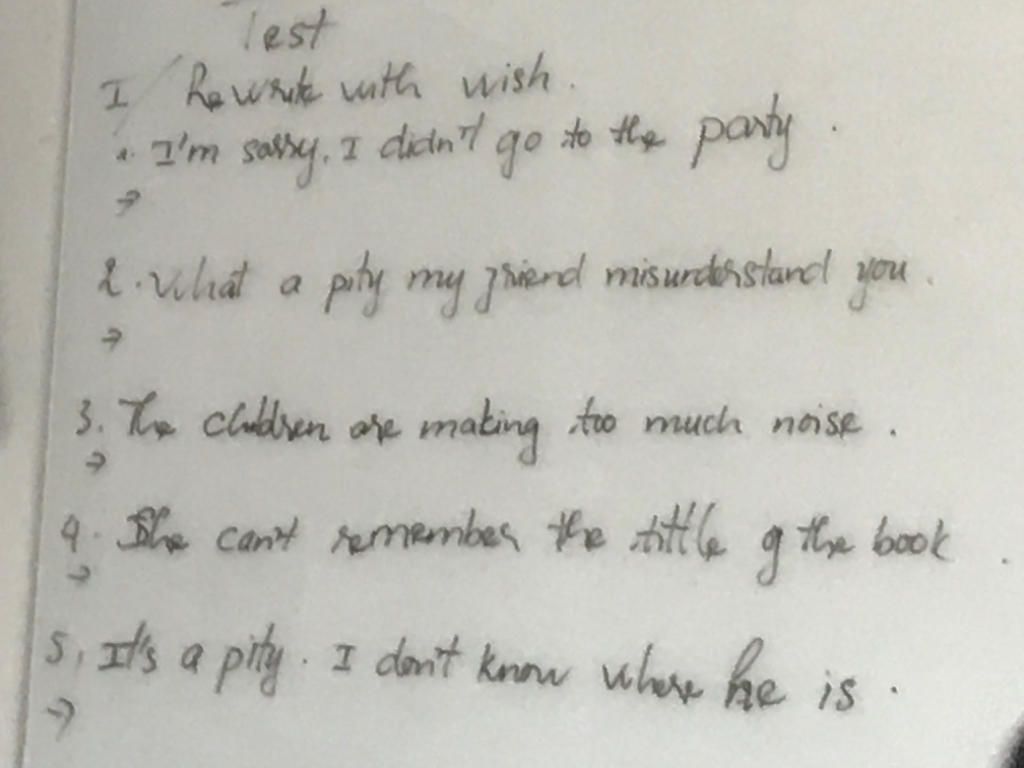 Test
I/ Rewrite with wish.
1. I'm sorry. I didn't go to the party.
→
2. What a pity my friend misunderstand you.
→
3. The children are making too much noise.
→
4. She can't remember the tittle of the book.
→
5. It's a pity. I don't know where he is.
→